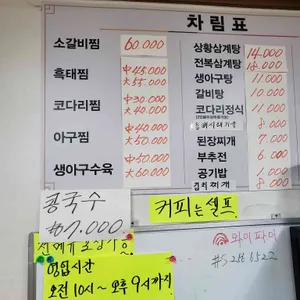 차림표
소갈비찜 60.000
흑태찜 中45.000
大55.000
코다리찜 中30.000
大40.000
아구찜 中40.000
大50.000
생아구수육 中50.000
大60.000
상황삼계탕 14.000
전복삼계탕 18.000
생아구탕 11.000
갈비탕 10.000
코다리정식 11.000
8.000
된장찌개 7.000
부추전 6.000
공기밥 1.000
김치찌개 8.000
콩국수
₩7.000
커피는 셀프
영업시간
오전 10시~오후 9시까지
와이파이